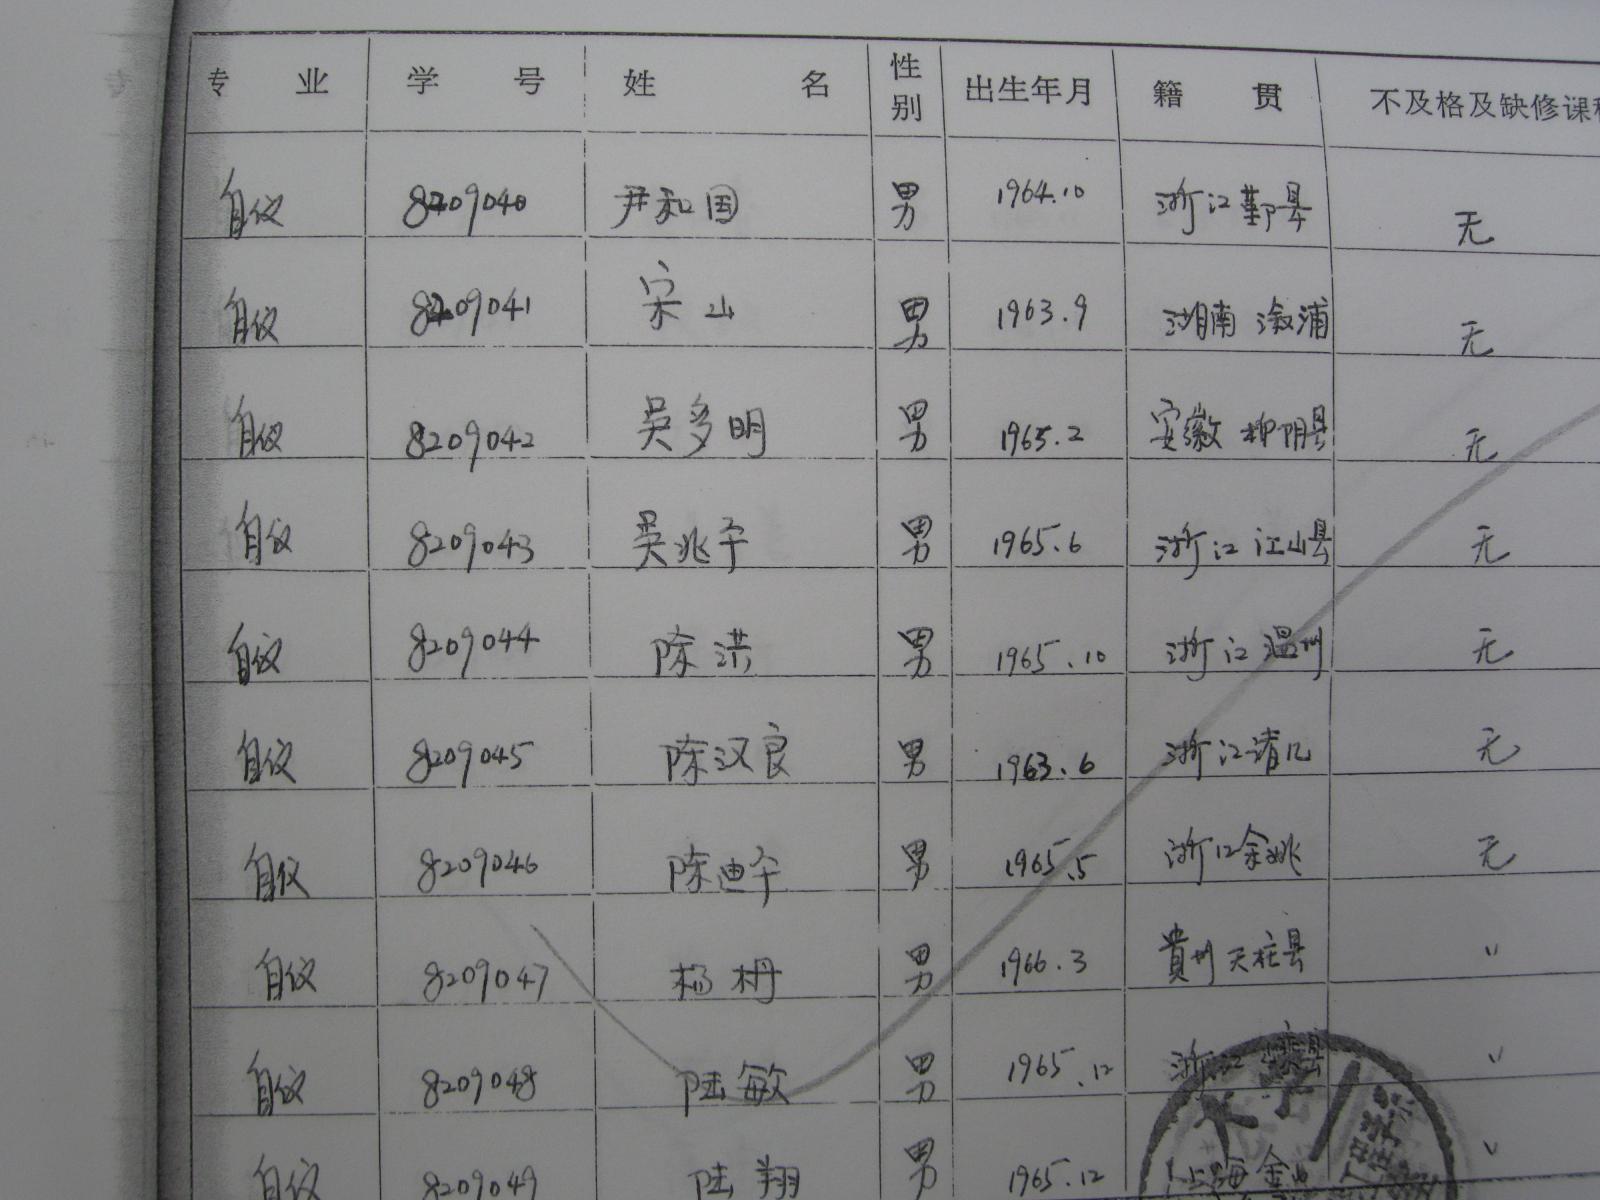 专 业 学 号 姓 名 性别 出生年月 籍 贯 不及格及缺修课
自仪 8209040 尹和国 男 1964.10 浙江鄞县 无
自仪 8209041 宋山 男 1963.9 湖南 溆浦 无
自仪 8209042 吴多明 男 1965.2 安徽 县 无
自仪 8209043 吴兆平 男 1965.6 浙江 江山县 无
自仪 8209044 陈洪 男 1965.10 浙江温州 无
自仪 8209045 陈汉良 男 1963.6 浙江 无
自仪 8209046 陈迪平 男 1965.5 浙江余姚 无
自仪 8209047 杨 男 1966.3 貴州天柱县 〃
自仪 8209048 陆敏 男 1965.12 浙江 县 〃
自仪 8209049 陆翔 男 1965.12 上海金山 〃
大学